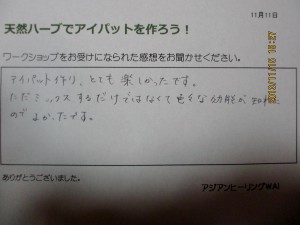 11月11日
天然ハーブでアイパットを作ろう！
ワークショップをお受けになられた感想をお聞かせください。
アイパット作り、とても楽しかったです。
ただミックスするだけではなくて色々な効能が知れた
のでよかったです。
ありがとうございました。
アジアンヒーリングWAI